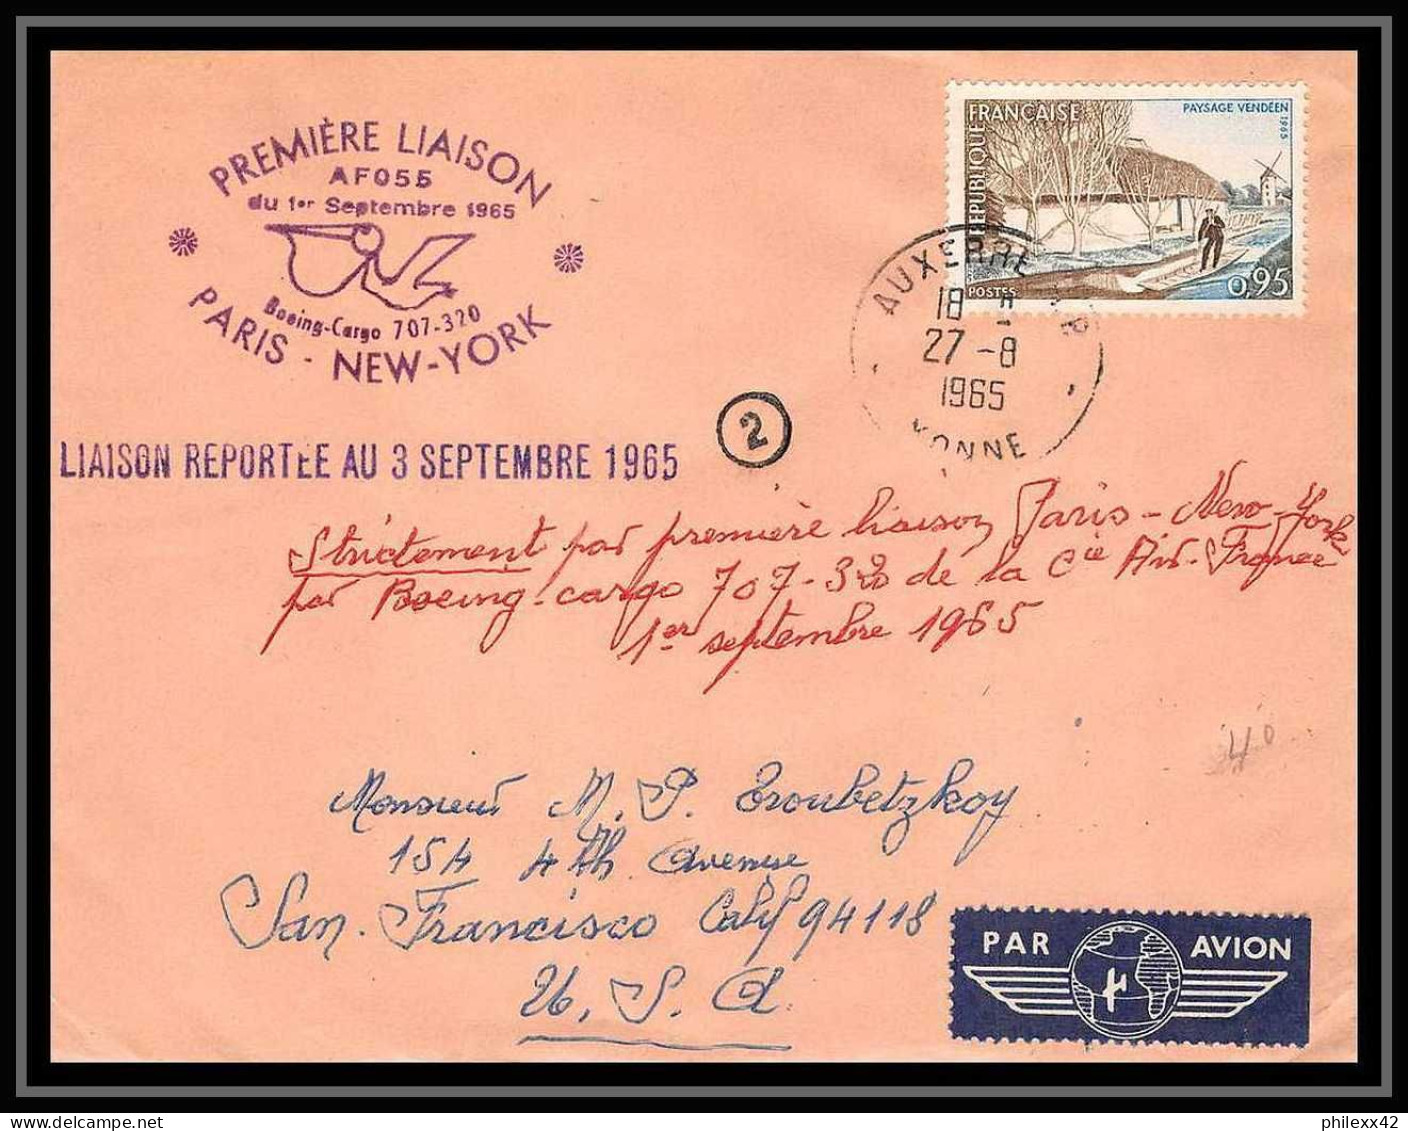 PREMIÈRE LIAISON
AF055
du 1er Septembre 1965
Boeing-Cargo 707-320
PARIS - NEW-YORK
LIAISON REPORTÉE AU 3 SEPTEMBRE 1965
2
REPUBLIQUE FRANÇAISE
PAYSAGE VENDÉEN
1965
POSTES
0,95
AUXERRE
18
27 -8
1965
YONNE
Strictement par première liaison Paris - New-York
par Boeing-cargo 707-320 de la Cie Air-France
1er septembre 1965
40
Monsieur M. P. Troubetzkoy
154 4th Avenue
San. Francisco Calif 94118
U. S. A
PAR AVION
philexx42